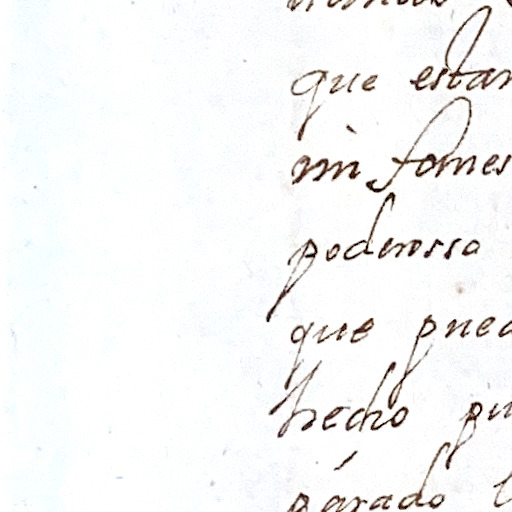 que estan
mi fomes
poderosso
que pued
hecho pu
parado l